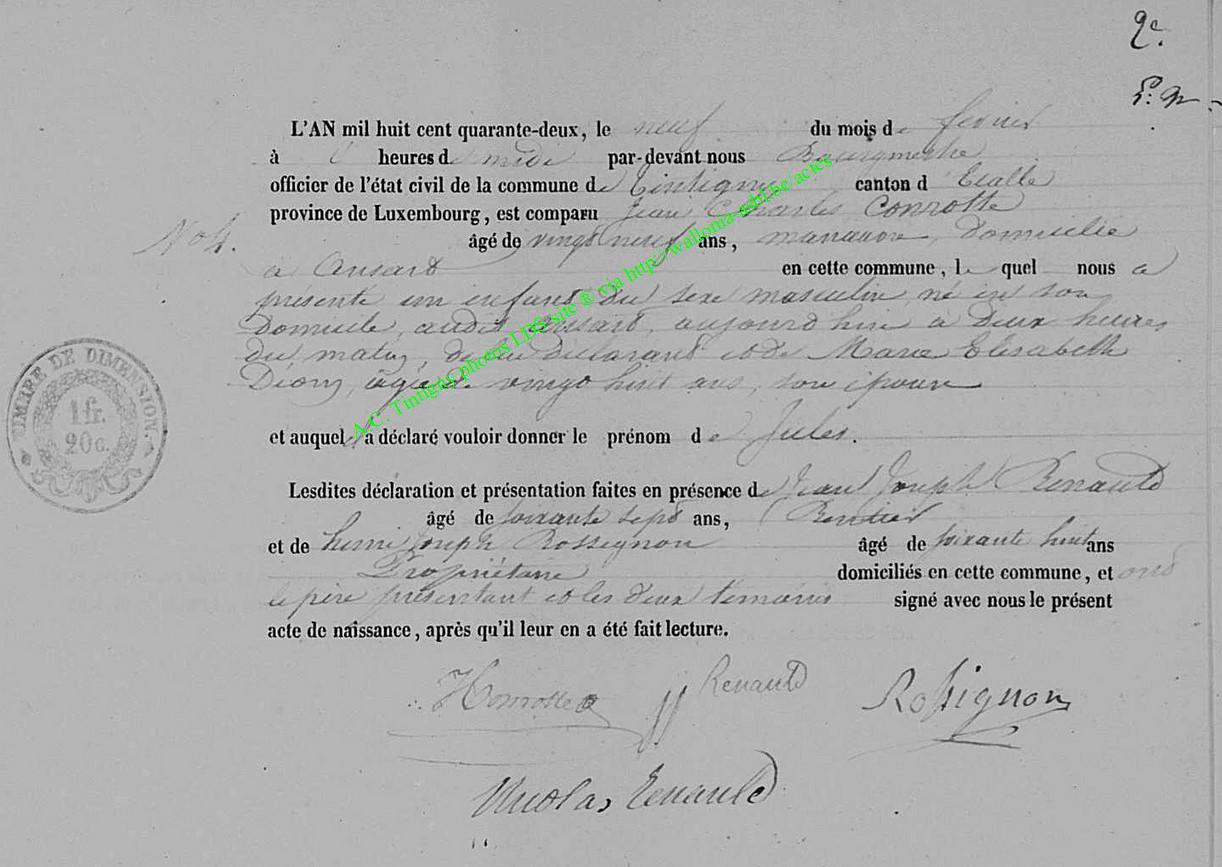 2e.
L'AN mil huit cent quarante-deux, le neuf du mois de fevrier
à heures de midi par-devant nous Bourgmestre
officier de l'état civil de la commune de Tintigny canton d Etalle
province de Luxembourg, est comparu Jean Charles Conrotte
No 4.
âgé de vingt neuf ans, manœuvre, domicilié
à Ansart en cette commune, le quel nous a
présenté un enfant du sexe masculin né en son
domicile, audit Ansart, aujourd'hui a deux heures
du matin, de lui déclarant et de Marie Elisabeth
Dion, agée de vingt huit ans, son épouse
et auquel a déclaré vouloir donner le prénom de Jules.
Lesdites déclaration et présentation faites en présence de Jean Joseph Renauld
âgé de soixante sept ans, Rentier
et de henri Joseph Rossignon âgé de soixante huit ans
Propriétaire domiciliés en cette commune, et ont
le père présentant et les deux témoins signé avec nous le présent
acte de naissance, après qu'il leur en a été fait lecture.
TIMBRE DE DIMENSION.
1 fr.
20 c.
Conrotte JJ Renauld Rossignon
Nicolas Renauld
A.C. Tintigny photos LDS site ® via http://wallonia-asbl.be/actes